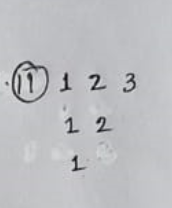 11 1 2 3
1 2
1